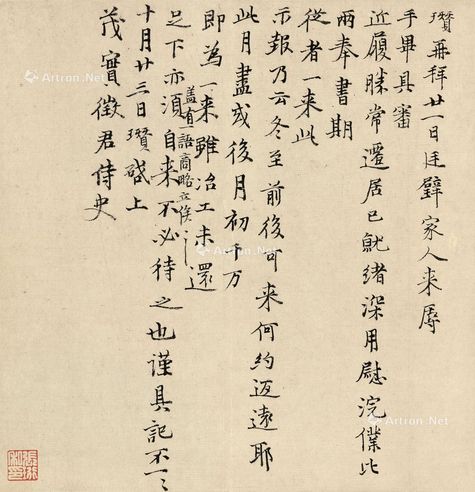 瓚再拜廿一日廷璧家人来辱
手畢具審
近履勝常遷居已就緒深用慰浣僕比
兩奉書期
從者一来此
示報乃云冬至前後可来何約迂遠耶
此月盡或後月初千万
即為一来雖冶工未還
盖有一語商略立俟之
足下亦須自来不必待之也謹具記不一〻
十月廿三日瓚啓上
茂實徵君侍史
張珩私印
Artron.Net
Artron.Net
Artron.Net
Artron.Net